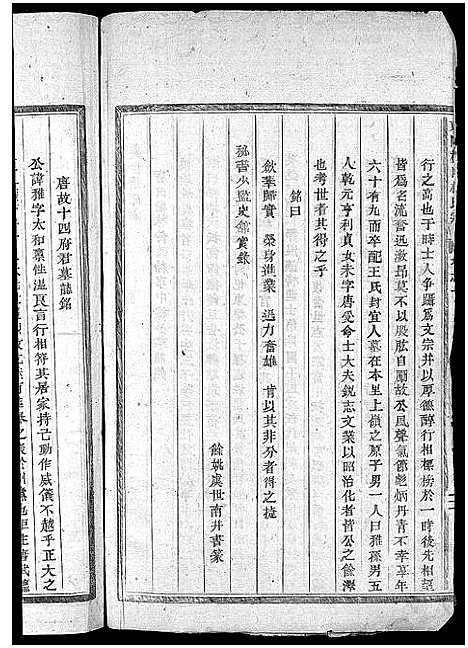 行之高也于時士人争躡爲文宗并以厚德醇行相標榜於一時後先相望
皆爲名流奮迅激昂莫不以股肱自期故公風聲氣節彪炳丹青不幸享年
六十有九而卒配王氏封宜人墓在本里上嶺之原子男一人曰雅孫男五
人乾元亨利貞女未字唐受命士大夫鋭志文業以昭治化者皆公之餘澤
也考世者其得之乎
銘曰
斂華歸實 榮身進業 迅力奮雄 肯以其非分者之捷
餘姚虞世南并書篆
秘書少監史館實錄
唐故十四府君墓誌銘
公諱雅字太和禀性温良言行相符其居家持己動作威儀不越乎正大之